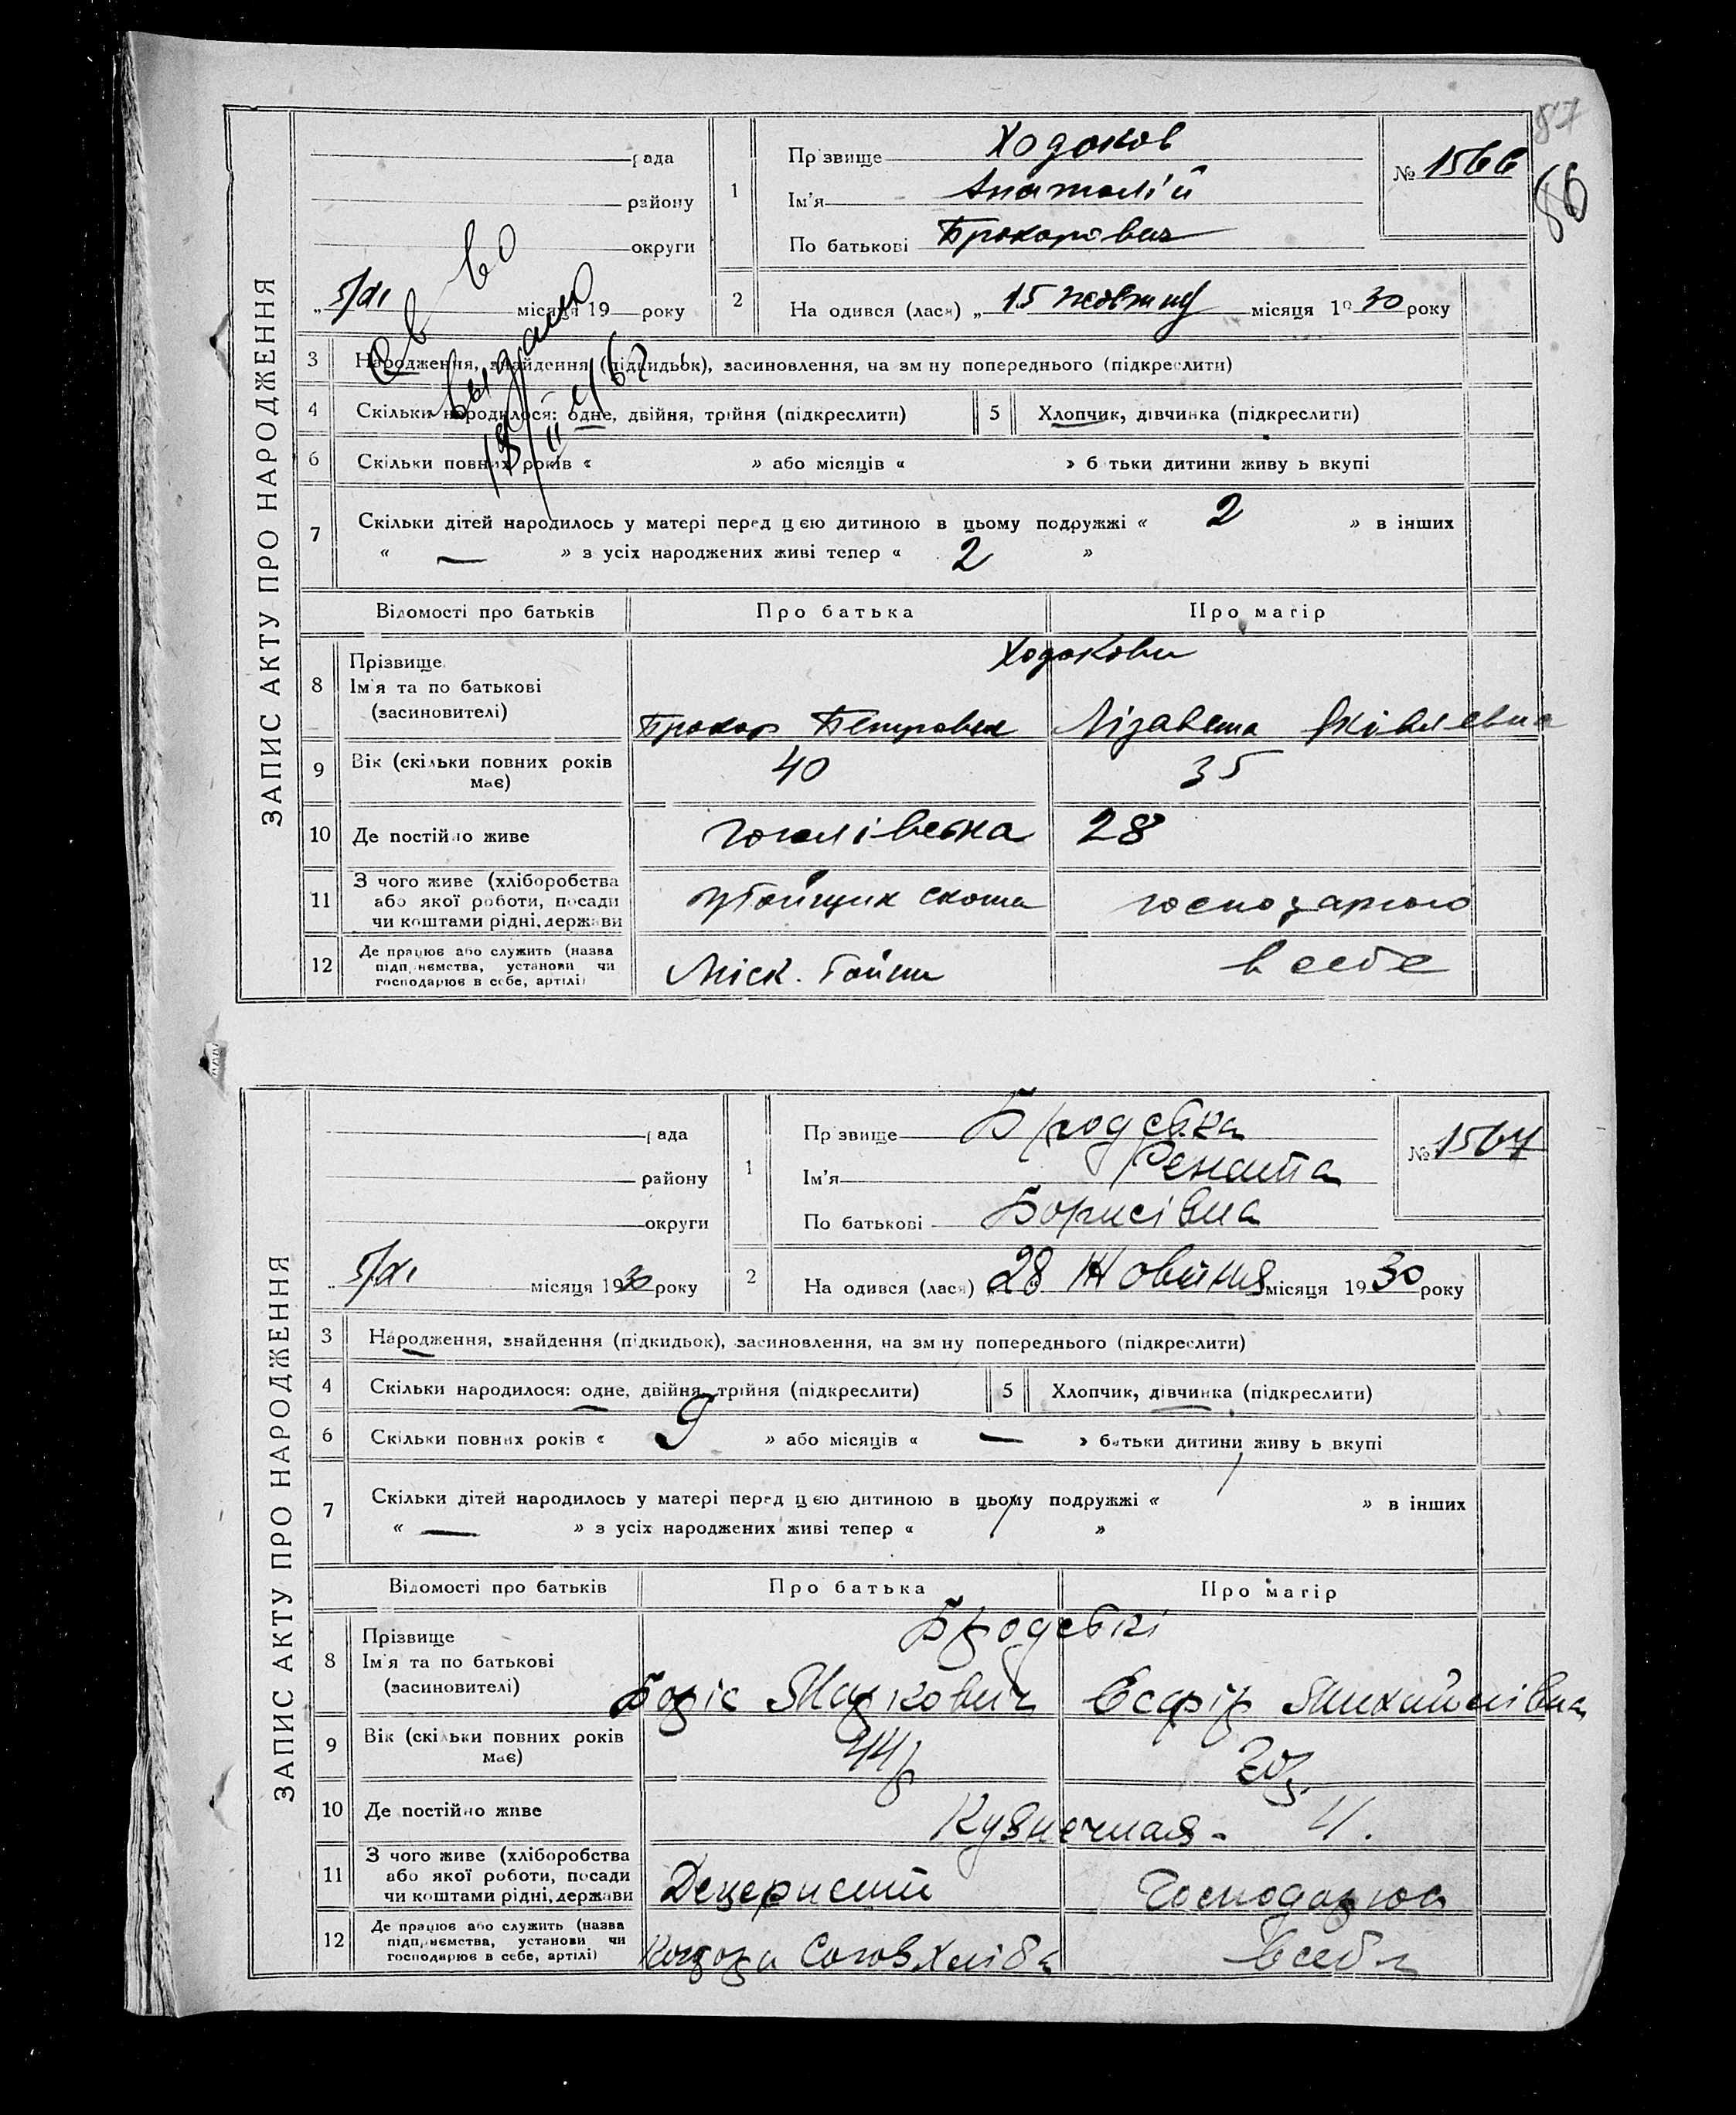 87
86
ЗАПИС АКТУ ПРО НАРОДЖЕННЯ
рада
району
округи
5/XI місяця 19 року
Св во
выдано
1 Прізвище Ходоков
Ім'я Анатолій
По батькові Прокорович
№ 1566
2 На одився (лася) „ 15 жовтня місяця 1930 року
3 Народження, знайдення (підкидьок), засиновлення, на зм ну попереднього (підкреслити)
4 Скільки народилося: одне, двійня, трійня (підкреслити) 5 Хлопчик, дівчинка (підкреслити)
6 Скільки повних років « » або місяців « » б тьки дитини живу ь вкупі
7 Скільки дітей народилось у матері перед цією дитиною в цьому подружжі « 2 » в інших
« — » з усіх народжених живі тепер « 2 »
Відомості про батьків Про батька Про матір
8 Прізвище Ім'я та по батькові (засиновителі)
Ходокови
Прокор Петрович Лізавета Яківлевна
9 Вік (скільки повних років має) 40 35
10 Де постійно живе 28
11 З чого живе (хліборобства
або якої роботи, посади
чи коштами рідні, держави
скота господарюю
12 Де працює або служить (назва
підп,иємства, установи чи
господарює в себе, артілі)
Міск. бойни в себе
ЗАПИС АКТУ ПРО НАРОДЖЕННЯ
рада
району
округи
5/XI місяця 1930 року
1 Прізвище Бродська
Ім'я Рената
По батькові Борисівна
№ 1567
2 На одився (лася) 28 Жовтня місяця 1930 року
3 Народження, знайдення (підкидьок), засиновлення, на зм ну попереднього (підкреслити)
4 Скільки народилося: одне, двійня, трійня (підкреслити) 5 Хлопчик, дівчинка (підкреслити)
6 Скільки повних років « 9 » або місяців « — » батьки дитини живу ь вкупі
7 Скільки дітей народилось у матері перед цією дитиною в цьому подружжі « » в інших
« — » з усіх народжених живі тепер « »
Відомості про батьків Про батька Про матір
8 Прізвище Ім'я та по батькові (засиновителі)
Бродські
Боріс Маркович Есфір Михайлівна
9 Вік (скільки повних років має) 44р 30р.
10 Де постійно живе Кузнечная - 4.
11 З чого живе (хліборобства
або якої роботи, посади
чи коштами рідні, держави
Господарює
12 Де працює або служить (назва
підп,иємства, установи чи
господарює в себе, артілі)
Контора Союзхліба в себе